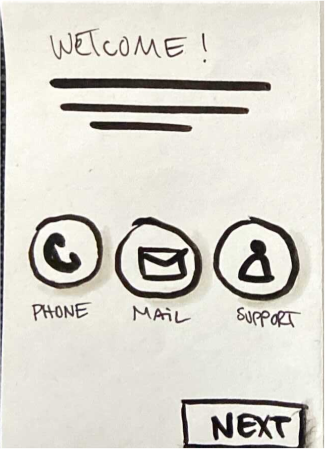 WELCOME!
PHONE MAIL SUPPORT
NEXT